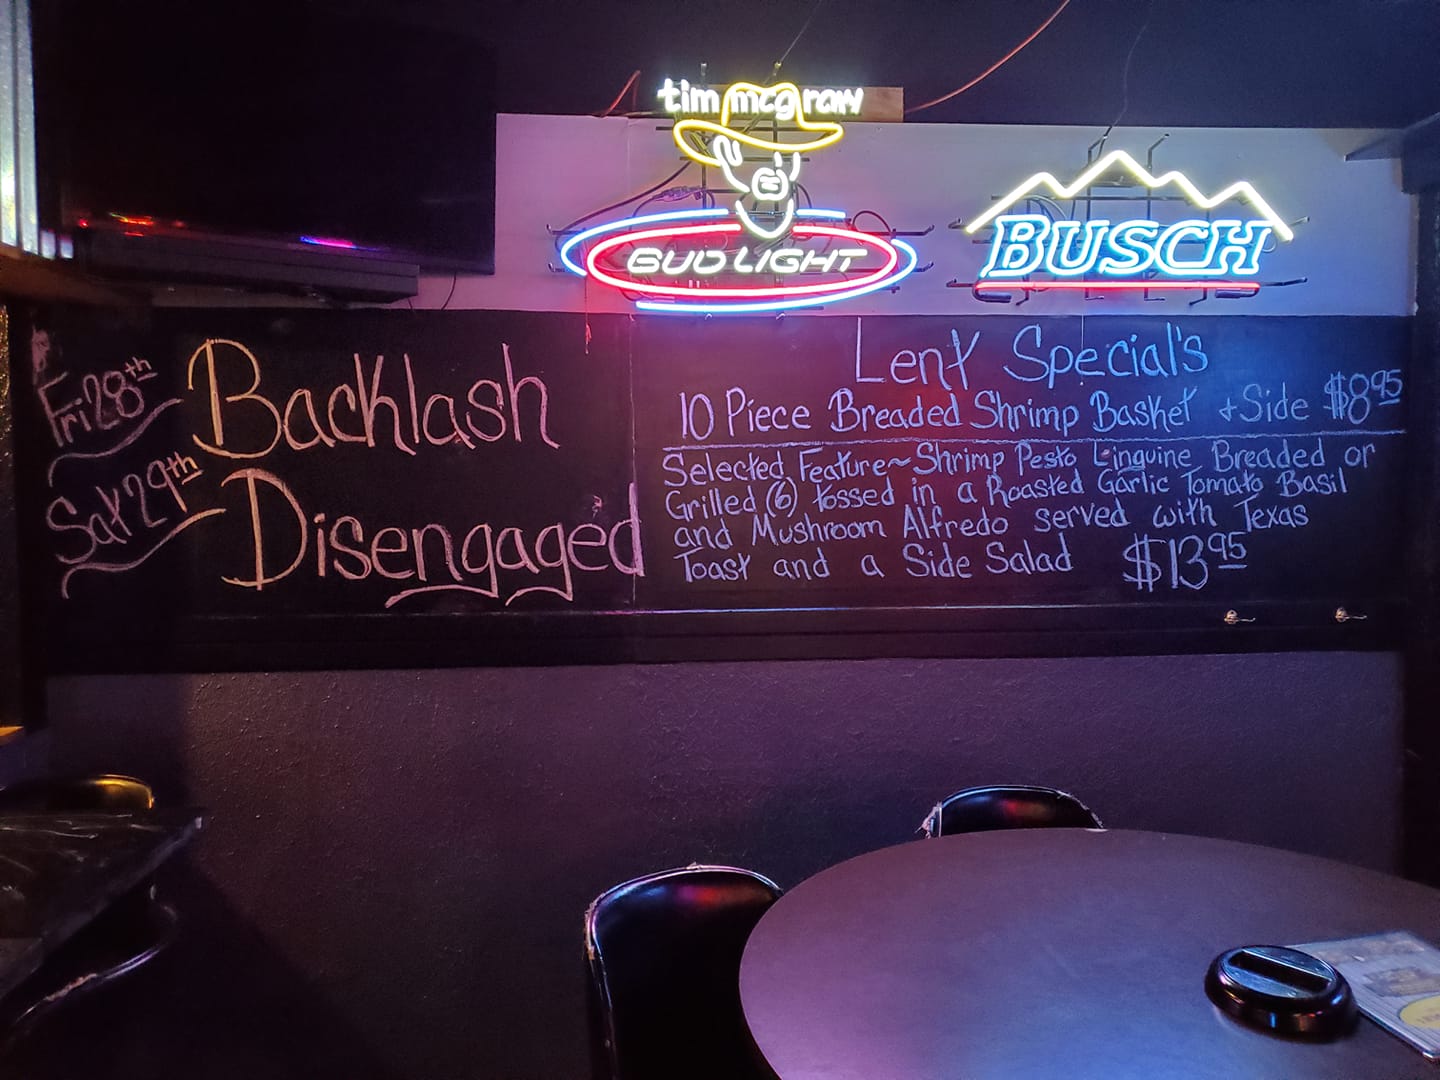 tim mcgraw
BUD LIGHT
BUSCH
Fri 28th Backlash
Sat 29th Disengaged
Lent Special's
10 Piece Breaded Shrimp Basket + Side $8.95
Selected Feature~ Shrimp Pesto Linguine Breaded or
Grilled (6) tossed in a Roasted Garlic Tomato Basil
and Mushroom Alfredo served with Texas
Toast and a Side Salad $13.95